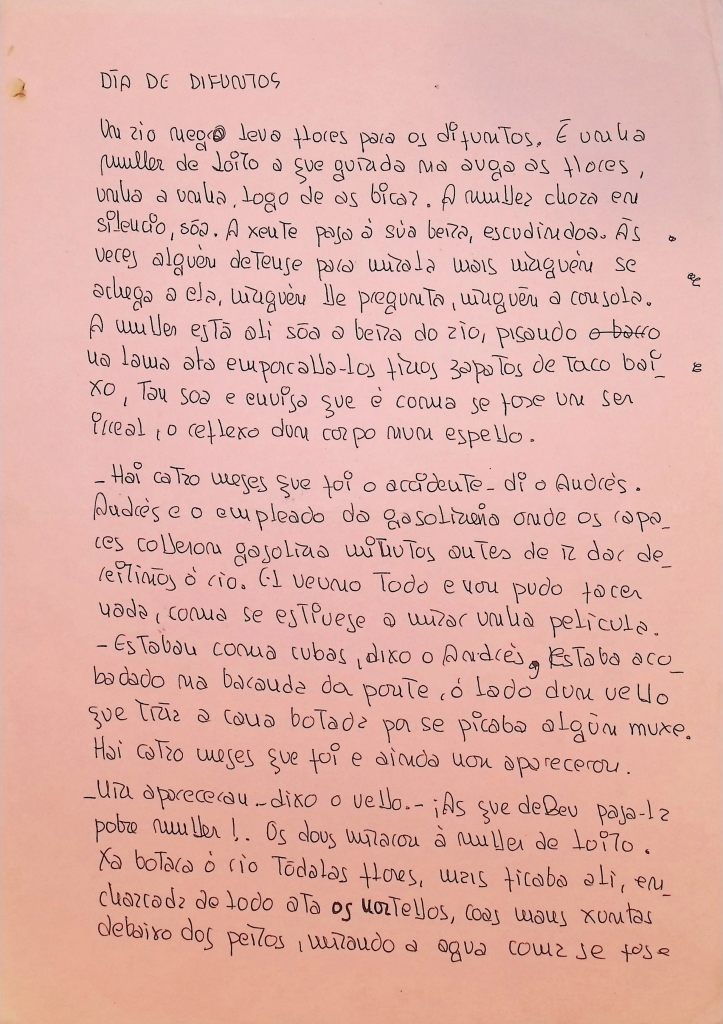 DÍA DE DIFUNTOS
Un río negro leva flores para os difuntos. É unha
muller de loito a que guinda na auga as flores,
unha a unha, logo de as bicar. A muller chora en
silencio, soa. A xente pasa á súa beira, escudindoa. Ás
veces alguén detense para mirala mais ninguén se
achega a ela, ninguén lle pregunta, ninguén a consola.
A muller está alí soa a beira do río, pisando o barro
na lama ata emporcalla-los finos zapatos de taco bai_
xo, tan soa e enxisa que é coma se fose un ser
irreal, o reflexo dun corpo nun espello.
- Hai catro meses que foi o accidente - di o Andrés.
Andrés e o empleado da gasolineira onde os rapa_
ces colleron gasolina minutos antes de ir dar de_
reitiños ó río. El veuno todo e non pudo facer
nada, coma se estivese a mirar unha película.
- Estaban coma cubas, dixo o Andrés, Estaba aco_
badado na baranda da ponte, ó lado dun vello
que tiña a cana botada por se picaba algún muxe.
Hai catro meses que foi e ainda non apareceron.
- Nin apareceran - dixo o vello. - ¡As que debeu pasa-la
pobre muller!. Os dous miraron á muller de loito.
Xa botara ó río tódalas flores, mais ficaba alí, en_
charcada de lodo ata os nortellos, coas mans xuntas
debaixo dos peitos, mirando a agua coma se fose